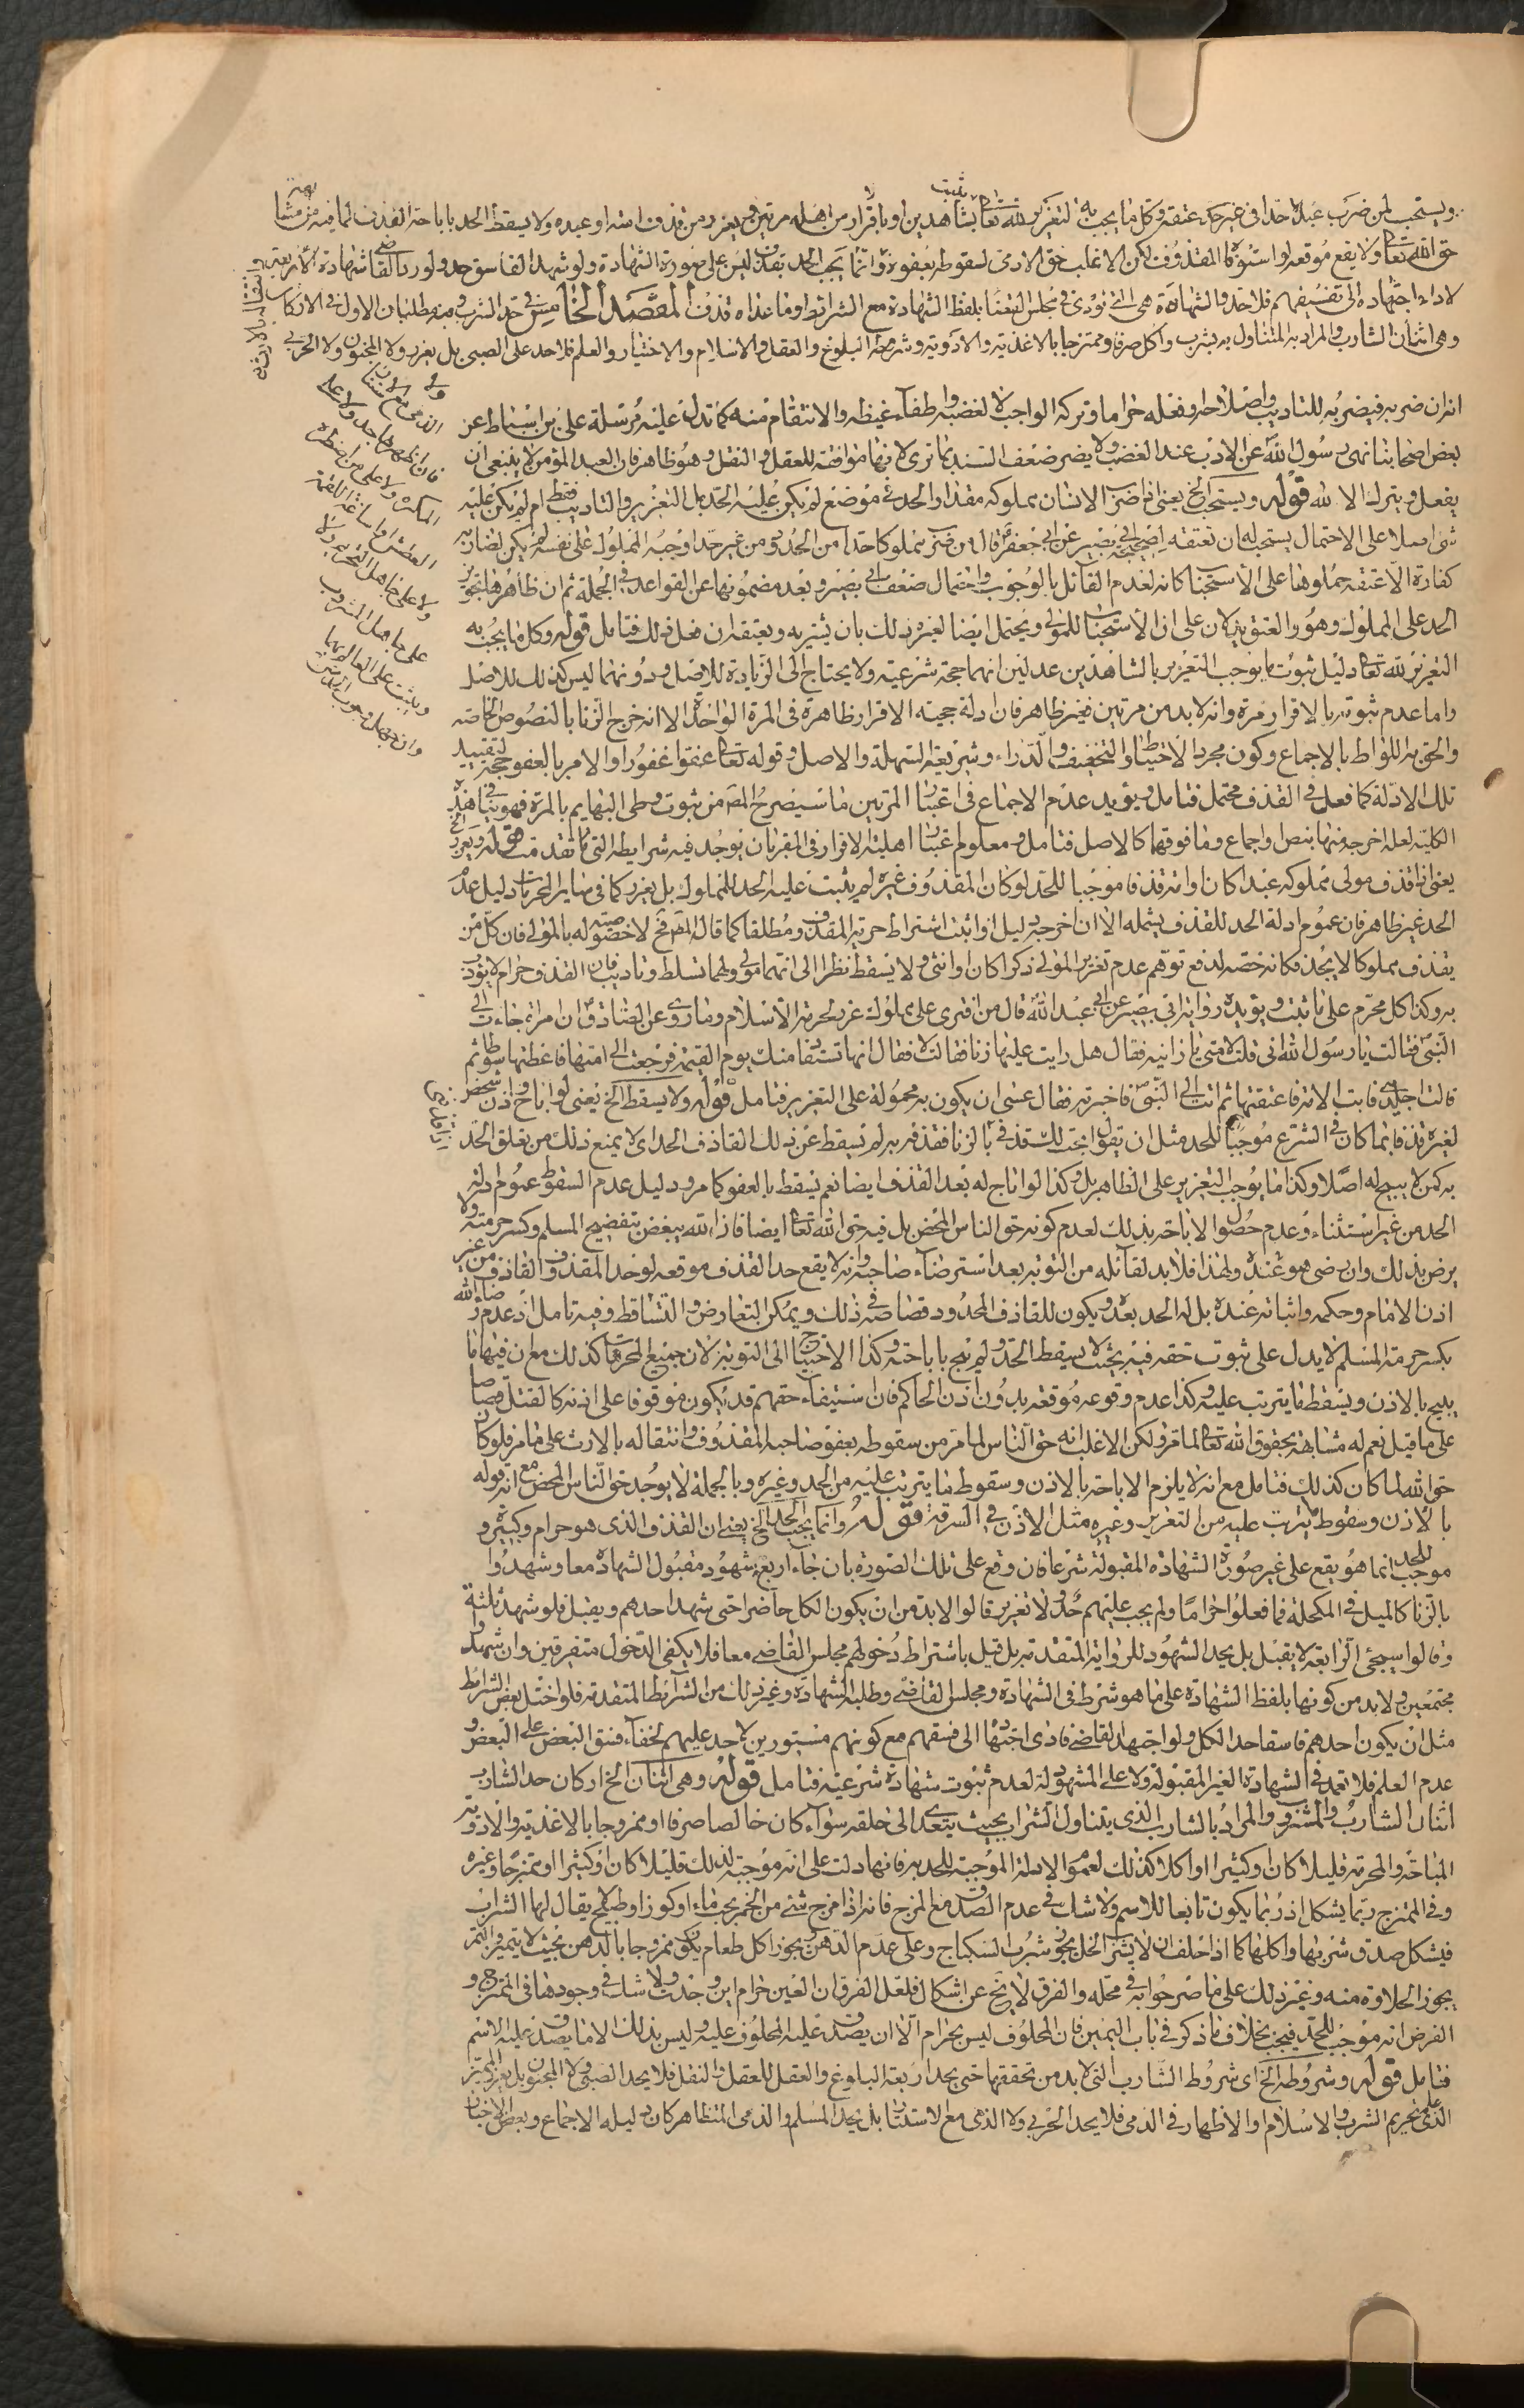 ويستحب لمن ضرب عبده حدا فى غير حد عتقه وكل ما يجب به التعزير لله تعالى يثبت بشاهدين او باقرار من اهله مرتين ويعزر من قذف امته او عبده ولا يسقط الحد باباحة القذف لما فيه من مشابهة
حق الله تعالى ولا يقع موقعه لو استوفاه المقذوف لكن الاغلب حق الادمى لسقوطه بعفوه وانما يجب الحد بقذف ليس على صورة الشهادة ولو شهد الفاسق حد ولو رد القاضى شهادة الاربعة
لاداء اجتهاده الى تفسيقهم فلا حد والشهادة هى التى تؤدى فى مجلس القضاء بلفظ الشهادة مع الشرائط وما عداه قذف المقصد الخامس فى حد الشرب وفيه مطلبان الاول فى الاركان
وهى اثنان الشارب والمراد به المتناول به بشرب واكل صرفا وممتزجا بالاغذية والادوية وشرطه البلوغ والعقل والاسلام والاختيار والعلم فلا حد على الصبى بل يعزر ولا المجنون ولا الحربى
ولا
الذمى مع الاستتار
فان اظهرها حد ولا على
المكره ولا على من اضطره
العطش او اساغة اللقمة
ولا على جاهل التحريم ولا
على جاهل المشروب
ويثبت على العالم بهما
وان جهل وجوب الحد
انه ان ضربه فيضربه للتاديب واصلاحه وفعله حراما وتركه الواجب لا لغضبه واطفاء غيظه والانتقام منه كما تدل عليه مرسلة على بن اسباط عن
بعض اصحابنا نهى رسول الله عن الادب عند الغضب ولا يضر ضعف السند بما ترى لانها موافقة للعقل والنقل وهو ظاهر فان العبد المؤمن لا ينبغى ان
يفعل ويترك الا لله قوله ويستحب الخ يعنى اذا ضرب الانسان مملوكه مقدار الحد فى موضع لم يكن عليه الحد بل التعزير والتاديب فقط ام لم يكن عليه
شئ اصلا على الاحتمال يستحب له ان يعتقه لصحيحة ابى بصير عن ابى جعفر قال من ضرب مملوكا حدا من الحدود من غير حد اوجبه المملوك على نفسه لم يكن لضاربه
كفارة الا عتقه حملوها على الاستحباب كانه لعدم القائل بالوجوب واحتمال ضعف ابى بصير وبعد مضمونها عن القواعد فى الجملة ثم ان ظاهرها تجويز
الحد على المملوك وهو والعتق يدلان على ان الاستحباب للمولى ويحتمل ايضا لغيره ذلك بان يشتريه ويعتقه ان فعل ذلك فتامل قوله وكل ما يجب به
التعزير لله تعالى دليل ثبوت ما يوجب التعزير بالشاهدين عدلين انهما حجة شرعية ولا يحتاج الى الزيادة للاصل ودونهما ليس كذلك للاصل
واما عدم ثبوته بالاقرار مرة وانه لابد من مرتين فغير ظاهر فان ادلة حجية الاقرار ظاهرة فى المرة الواحدة الا انه خرج الزنا بالنصوص الخاصه
والحق به اللواط بالاجماع وكون مجرد الاحتياط والتخفيف والدراء وشريعة السهلة والاصل وقوله تعالى عفوا غفورا والامر بالعفو حجة لتقييد
تلك الادلة كما فعل فى القذف محتمل فتامل ويؤيد عدم الاجماع فى اعتبار المرتين ما سيصرح المص من ثبوت وطى البهايم بالمرة فهو ينافى هذه
الكلية لعله اخرجه منها بنص واجماع وما فوقها كالاصل فتامل ومعلوم اعتبار اهلية الاقرار فى المقر بان يوجد فيه شرايطه التى ما تقدمت قوله ويعزر الخ
يعنى اذا قذف مولى مملوكه عبدا كان او امة قذفا موجبا للحد لو كان المقذوف غيره لم يثبت عليه الحد للمملوك بل يعزر كما فى ساير المحرمات دليل عدم
الحد غير ظاهر فان عموم ادلة الحد للقذف يشمله الا ان اخرجه دليل او اثبت اشتراط حرية المقذوف مطلقا كما قال المص فح لا خصوصية له بالمولى فان كل من
يقذف مملوكا لا يحد فكانه خصه لدفع توهم عدم تعزير المولى ذكرا كان او انثى ولا يسقط نظرا الى انهما مولى ولهما تسلط وتاديب فان القذف حرام لا يؤدب
به وكذا كل محرم على ما يثبت ويؤيده رواية ابى بصير عن ابى عبد الله قال من افترى على مملوك عزر لحرمة الاسلام وما روى عن الصادق ان امراة جاءت الى
النبى فقالت يا رسول الله انى قلت لامتى يا زانية فقال هل رايت عليها زنا فقالت لا فقال انها تستقاد منك يوم القيمة فرجعت الى امتها فاعطتها سوطا ثم
قالت اجلدينى فابت الامة فاعتقتها ثم اتت الى النبى فاخبرته فقال عسى ان يكون به محمولة على التعزير فتامل قوله ولا يسقط الخ يعنى لو اباح واذن شخص
لغيره قذفا بما كان فى الشرع موجبا للحد مثل ان يقول ابحت لك قذفى بالزنا فقذفه به لم يسقط عن ذلك القاذف الحد اى لا يمنع ذلك من تعلق الحد
به كمن لا يبيح له اصلا وكذا ما يوجب التعزير على الظاهر بل وكذا لو اباح له بعد القذف ايضا نعم يسقط بالعفو كما مر ودليل عدم السقوط عموم ادلة
الحد من غير استثناء وعدم حصول الاباحة بذلك لعدم كونه حق الناس المحض بل فيه حق الله تعالى ايضا فاذا الله يبغض بتفضيح المسلم وكسر حرمته ولا
يرضى بذلك وان رضى هو عنده ولهذا فلابد لقائله من التوبة بعد استرضاء صاحبه وانه لا يقع حد القذف موقعه لو حد المقذوف القاذف من غير
اذن الامام وحكمه واثباته عنده بل له الحد بعده ويكون للقاذف المحدود قصاصه فى ذلك ويمكن التعارض والتساقط وفيه تامل اذ عدم رضاء الله
بكسر حرمة المسلم لا يدل على ثبوت حقه فيه بحيث لا يسقط الحد ولم يبح باباحته وكذا الاحتياج الى التوبة لان جميع المحرمات كذلك مع ان فيها ما
يبيح بالاذن ويسقط ما يترتب عليه وكذا عدم وقوعه موقعه بدون اذن الحاكم فان استيفاء حقهم قد يكون موقوفا على اذنه كالقتل قصاصا
على ما قيل نعم له مشابهة بحقوق الله تعالى لما مر ولكن الاغلب انه حق الناس لما مر من سقوطه بعفو صاحبه المقذوف وانتقاله بالارث على ما مر فلو كان
حق الله لما كان كذلك فتامل مع انه لا يلزم الاباحة بالاذن وسقوط ما يترتب عليه من الحد وغيره وبالجملة لا يوجد حق الناس المحض مع انه قوله
بالاذن وسقوط ما يترتب عليه من التعزير وغيره مثل الاذن فى السرقة قوله وانما يجب الحد الخ يعنى ان القذف الذى هو حرام وكبيرة و
موجب للحد انما هو يقع على غير صورة الشهادة المقبولة شرعا فان وقع على تلك الصورة بان جاء اربع شهود مقبول الشهادة معا وشهدوا
بالزنا كالميل فى المكحلة فما فعلوا حراما ولم يجب عليهم حد ولا تعزير قالوا لابد من ان يكون الكل حاضرا حتى شهد احدهم ويقبل فلو شهد ثلثة
وقالوا سيجئ الرابعة لا يقبل بل يحد الشهود للرواية المتقدمة بل قيل باشتراط دخولهم مجلس القاضى معا فلا يكفى الدخول متفرقين وان شهدوا
مجتمعين ولابد من كونها بلفظ الشهادة على ما هو شرط فى الشهادة ومجلس القاضى وطلبه الشهادة وغير ذلك من الشرائط المتقدمة فلو اختل بعض الشرائط
مثل ان يكون احدهم فاسقا حد الكل ولو اجتهد القاضى فادى اجتهاده الى فسقهم مع كونهم مستورين لا حد عليهم لخفاء فسق البعض على البعض و
عدم العلم فلا تعد فى الشهادة الغير المقبولة ولا على المشهود له لعدم ثبوت شهادة شرعية فتامل قوله وهى اثنان الخ اركان حد الشارب
اثنان الشارب والمشروب والمراد بالشارب الذى يتناول الشراب بحيث يتعدى الى حلقه سواء كان خالصا صرفا او ممزوجا بالاغذية والادوية
المباحة والمحرمة قليلا كان او كثيرا او اكلا كذلك لعموم الادلة الموجبة للحد به فانها دلت على انه موجبة لذلك قليلا كان او كثيرا او ممتزجا وغيره
وفى الممتزج ربما يشكل اذ ربما يكون تابعا للاسم ولا شك فى عدم الصدق مع المزج فانه اذا مزج شئ من الخمر بحب ماء او كوز او طبيخ يقال لها الشراب
فيشكل صدق شربها واكلها كما اذا حلف ان لا يشرب الخل يجوز شرب السكباج وعلى عدم الدهن ويجوز اكل طعام يكون ممزوجا بالدهن بحيث لا يتميز والتمر
يجوز الحلاوة منه وغير ذلك على ما صرحوا به فى محله والفرق لا يخ عن اشكال فلعل الفرق ان العين حرام اين وجدت ولا شك فى وجودها فى الممتزج و
الفرض انه موجب للحد فيجب بخلاف ما ذكر فى باب اليمين فان المحلوف ليس بحرام الا ان يصدق عليه المحلوف عليه وليس بذلك الا ما يصدق عليه الاسم
فتامل قوله وشروطه الخ اى شروط الشارب التى لابد من تحققها حتى يحد اربعة البلوغ والعقل للعقل والنقل فلا يحد الصبى ولا المجنون بل يعزر المميز
الذى علم تحريم الشرب والاسلام والاظهار فى الذمى فلا يحد الحربى ولا الذمى مع الاستتار بل يحد المسلم والذمى المتظاهر كان دليله الاجماع وبعض الاخبار